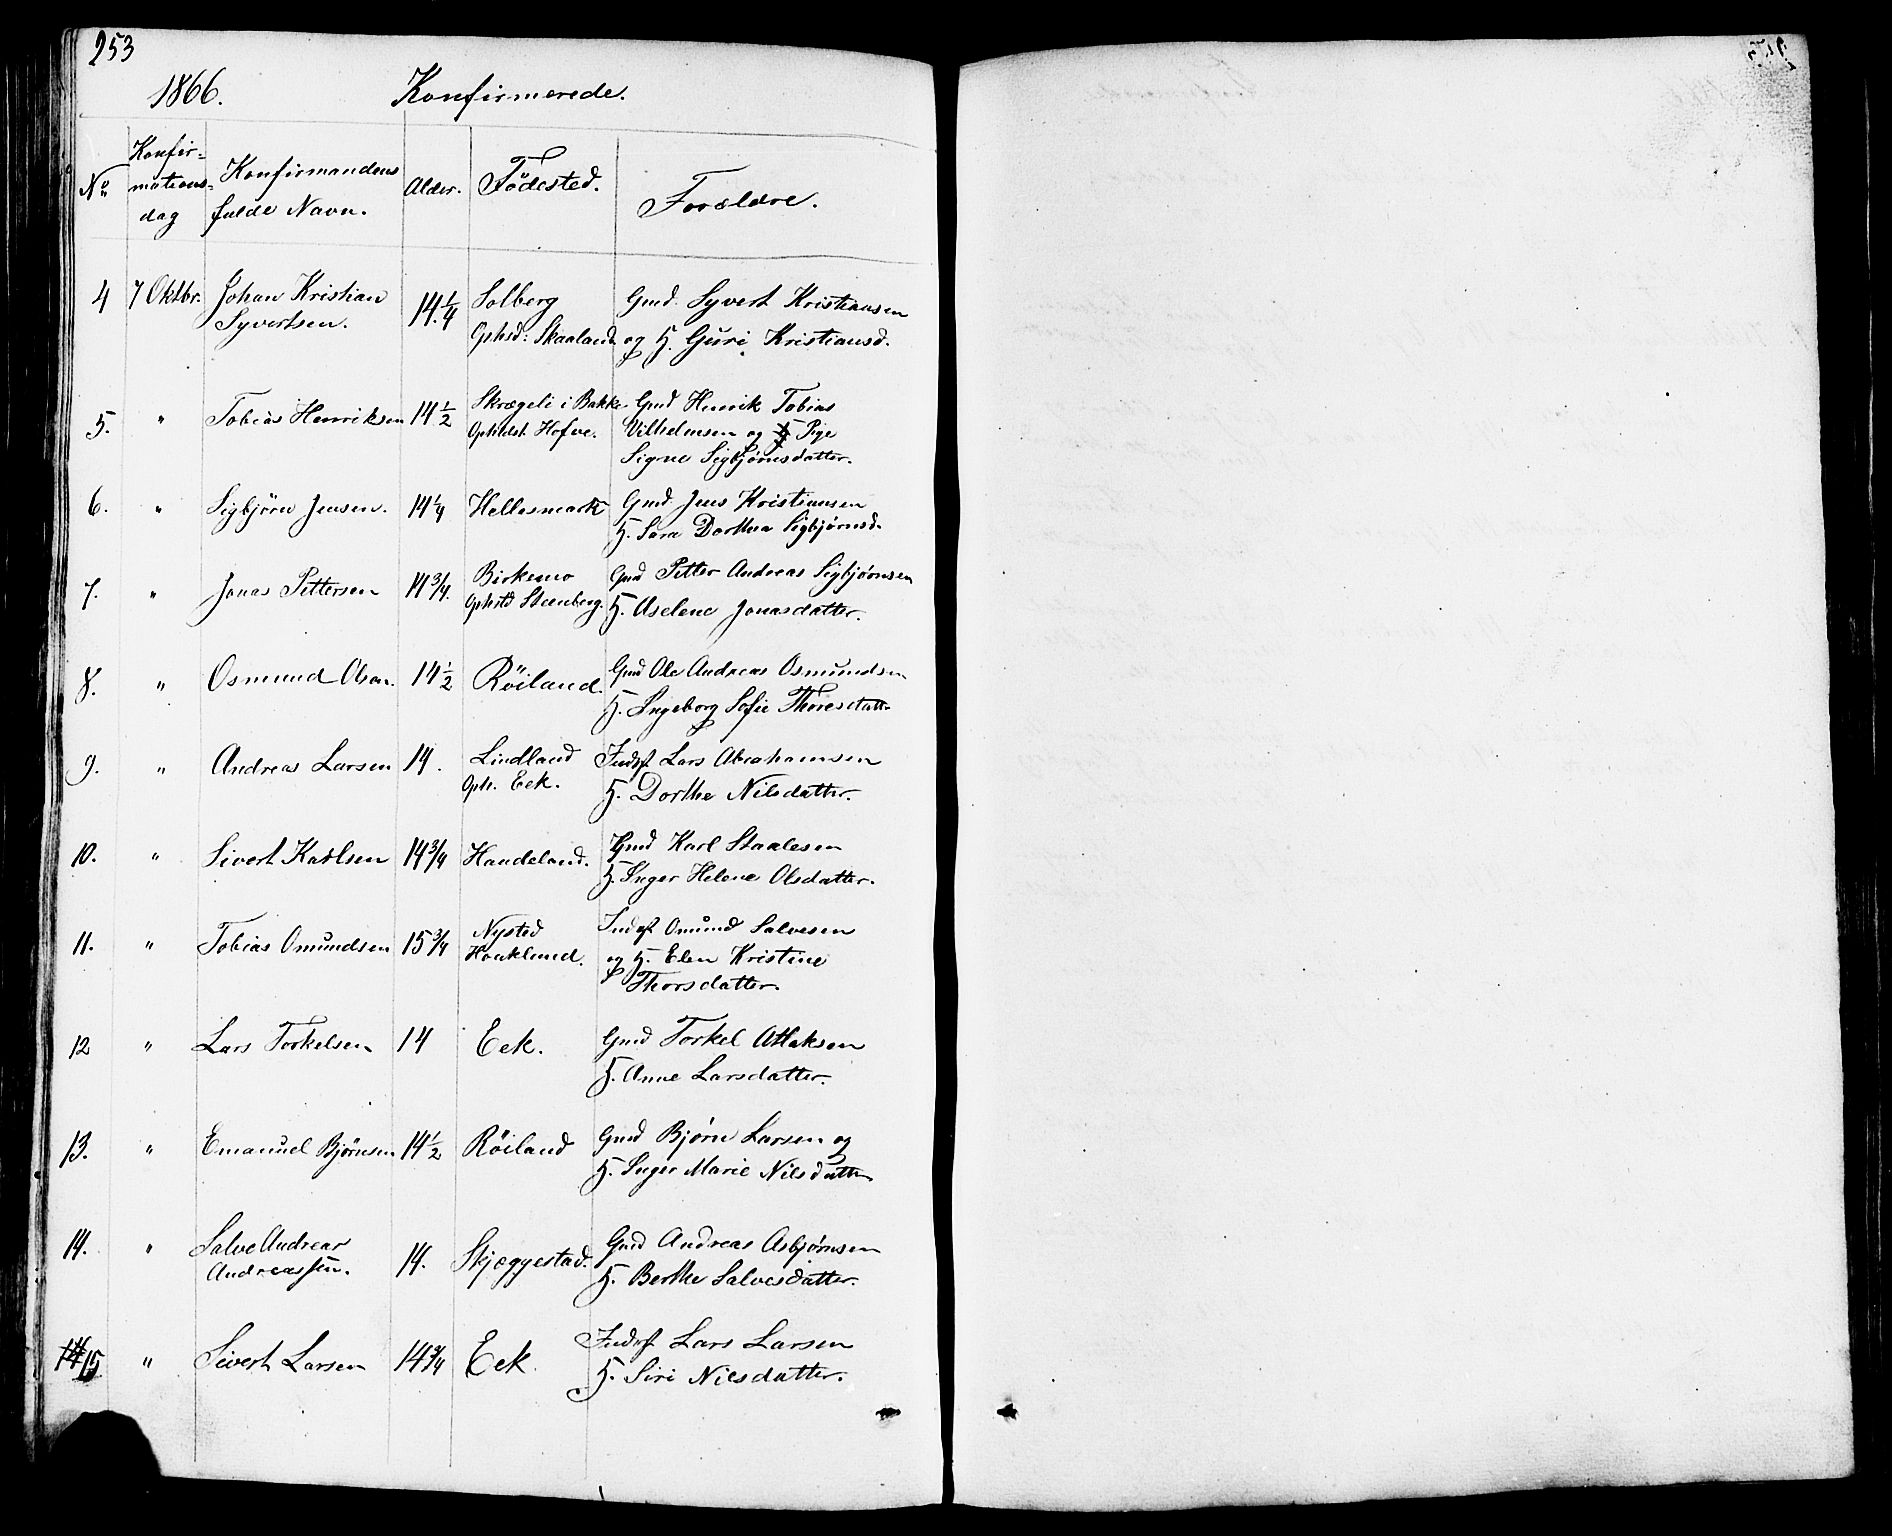 253
1866. Konfirmerede.
No Konfirmations-dag Konfirmandens fulde Navn. Alder. Födested. Forældre.
4 7 Oktbr. Johan Kristian Syvertsen. 14 1/4 Solberg Gmd. Syvert Kristiansen
Ophsd: Skaaland og H. Guri Kristiansd.
5. " Tobias Henriksen 14 1/2 Skrægeli i Bakke Gmd Henrik Tobias
Opholdst. Hofve. Vilhelmsen og Pige
Signe Sigbjørnsdatter.
6. " Sigbjörn Jensen. 14 1/4 Hellesmark Gmd. Jens Kristiansen
H. Sara Dorthea Sigbjørnsd.
7. " Jonas Pettersen 14 3/4. Birkemo Gmd Petter Andreas Sigbjørnsen
Ophstd Steenberg. H. Aselene Jonasdatter.
8. " Osmund Olsen. 14 1/2 Röiland. Gmd Ole Andreas Osmundsen
H. Ingeborg Sofie Thoresdatt.
9. " Andreas Larsen 14. Lindland Inderst Lars Abrahamsen
Oph. Eek. H. Dorthe Nilsdatter.
10. " Sivert Karlsen 14 3/4 Haudeland. Gmd Karl Staalesen
H. Inger Helene Olsdatter.
11. " Tobias Omundsen 15 3/4 Nysted Inderst Omund Salvesen
Houklund. og H. Elen Kristine
Thorsdatter.
12 " Lars Torkelsen 14 Eek. Gmd Torkel Atlaksen
H. Anne Larsdatter.
13. " Emanuel Bjørnsen 14 1/2 Röiland Gmd Bjørn Larsen og
H. Inger Marie Nilsdatter
14. " Salve Andreas Andreassen. 14. Skjeggestad. Gmd Andreas Asbjørnsen
H. Berthe Salvesdatter.
15 " Sivert Larsen 14 3/4 Eek. Inderst Lars Larsen
H. Siri Nilsdatter.